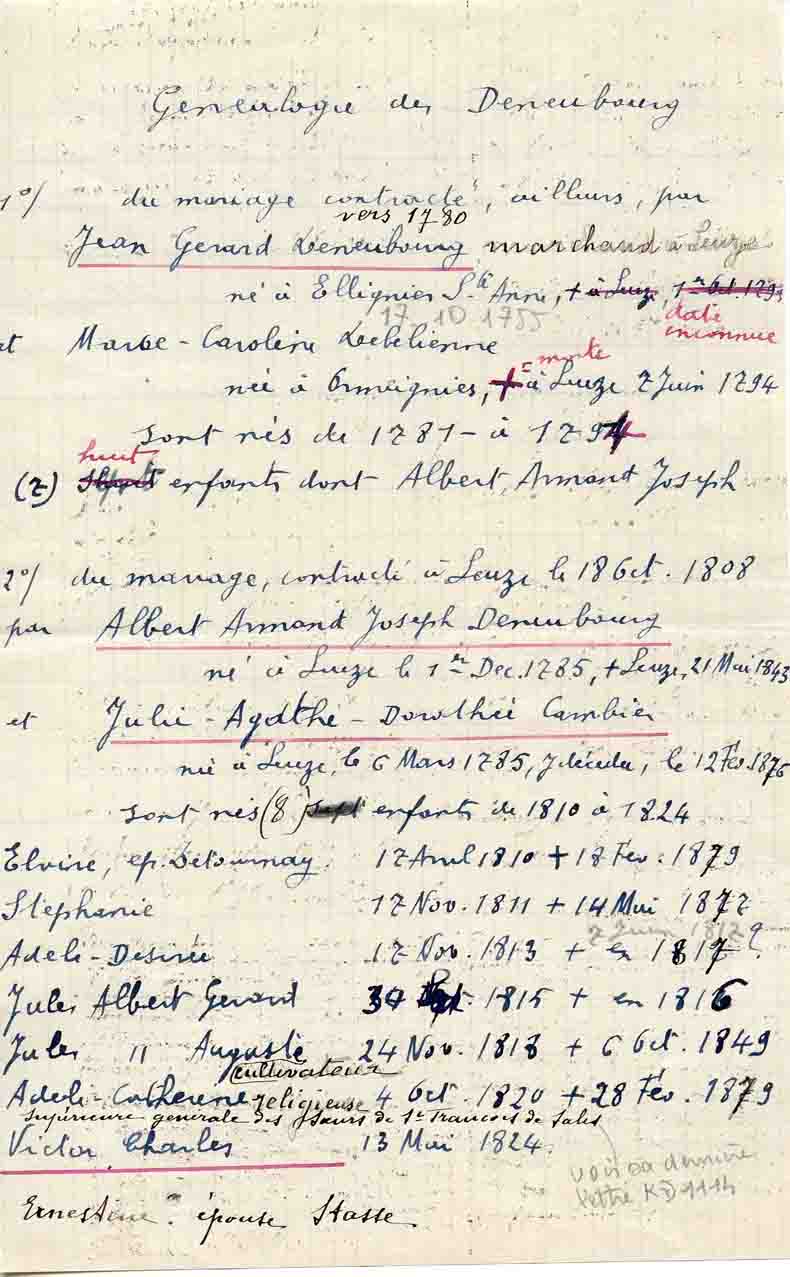 Genealogie des Deneubourg
1°/ du mariage contracté, ailleurs, par
vers 1780
Jean Gerard Deneubourg marchand à Leuze
né à Ellignies Ste Anne, + à Leuze, 1er Oct. 1794
date inconnue
17 10 1755
et Marie-Caroline Debelienne
née à Ormeignies, + morte à Leuze 7 Juin 1794
sont nés de 1781 - à 1794
huit
(7) enfants dont Albert Armand Joseph
2°/ du mariage, contracté à Leuze le 18 Oct. 1808
par Albert Armand Joseph Deneubourg
né à Leuze le 1er Dec. 1785, + Leuze, 21 Mai 1843
et Julie-Agathe-Dorothée Cambier
née à Leuze, le 6 Mars 1785, y décéda, le 12 Fév. 1876
sont nés (8) sept enfants de 1810 à 1824
Elvire, ep. Détournay. 17 Avril 1810 + 18 Fev. 1879
Stéphanie 17 Nov. 1811 + 14 Mai 1877
7 Juin 1817
Adèle-Désirée 17 Nov. 1813 + en 1817 ?
Jules Albert Gerard 1815 + en 1816
Jules " Auguste 24 Nov. 1818 + 6 Oct. 1849
(cultivateur
Adèle-Catherine religieuse 4 Oct. 1820 + 28 Fév. 1879
supérieure générale des Sœurs de St François de Sales
Victor Charles 13 Mai 1824
voir sa dernière
lettre KD 1114
Ernestine épouse Stasse